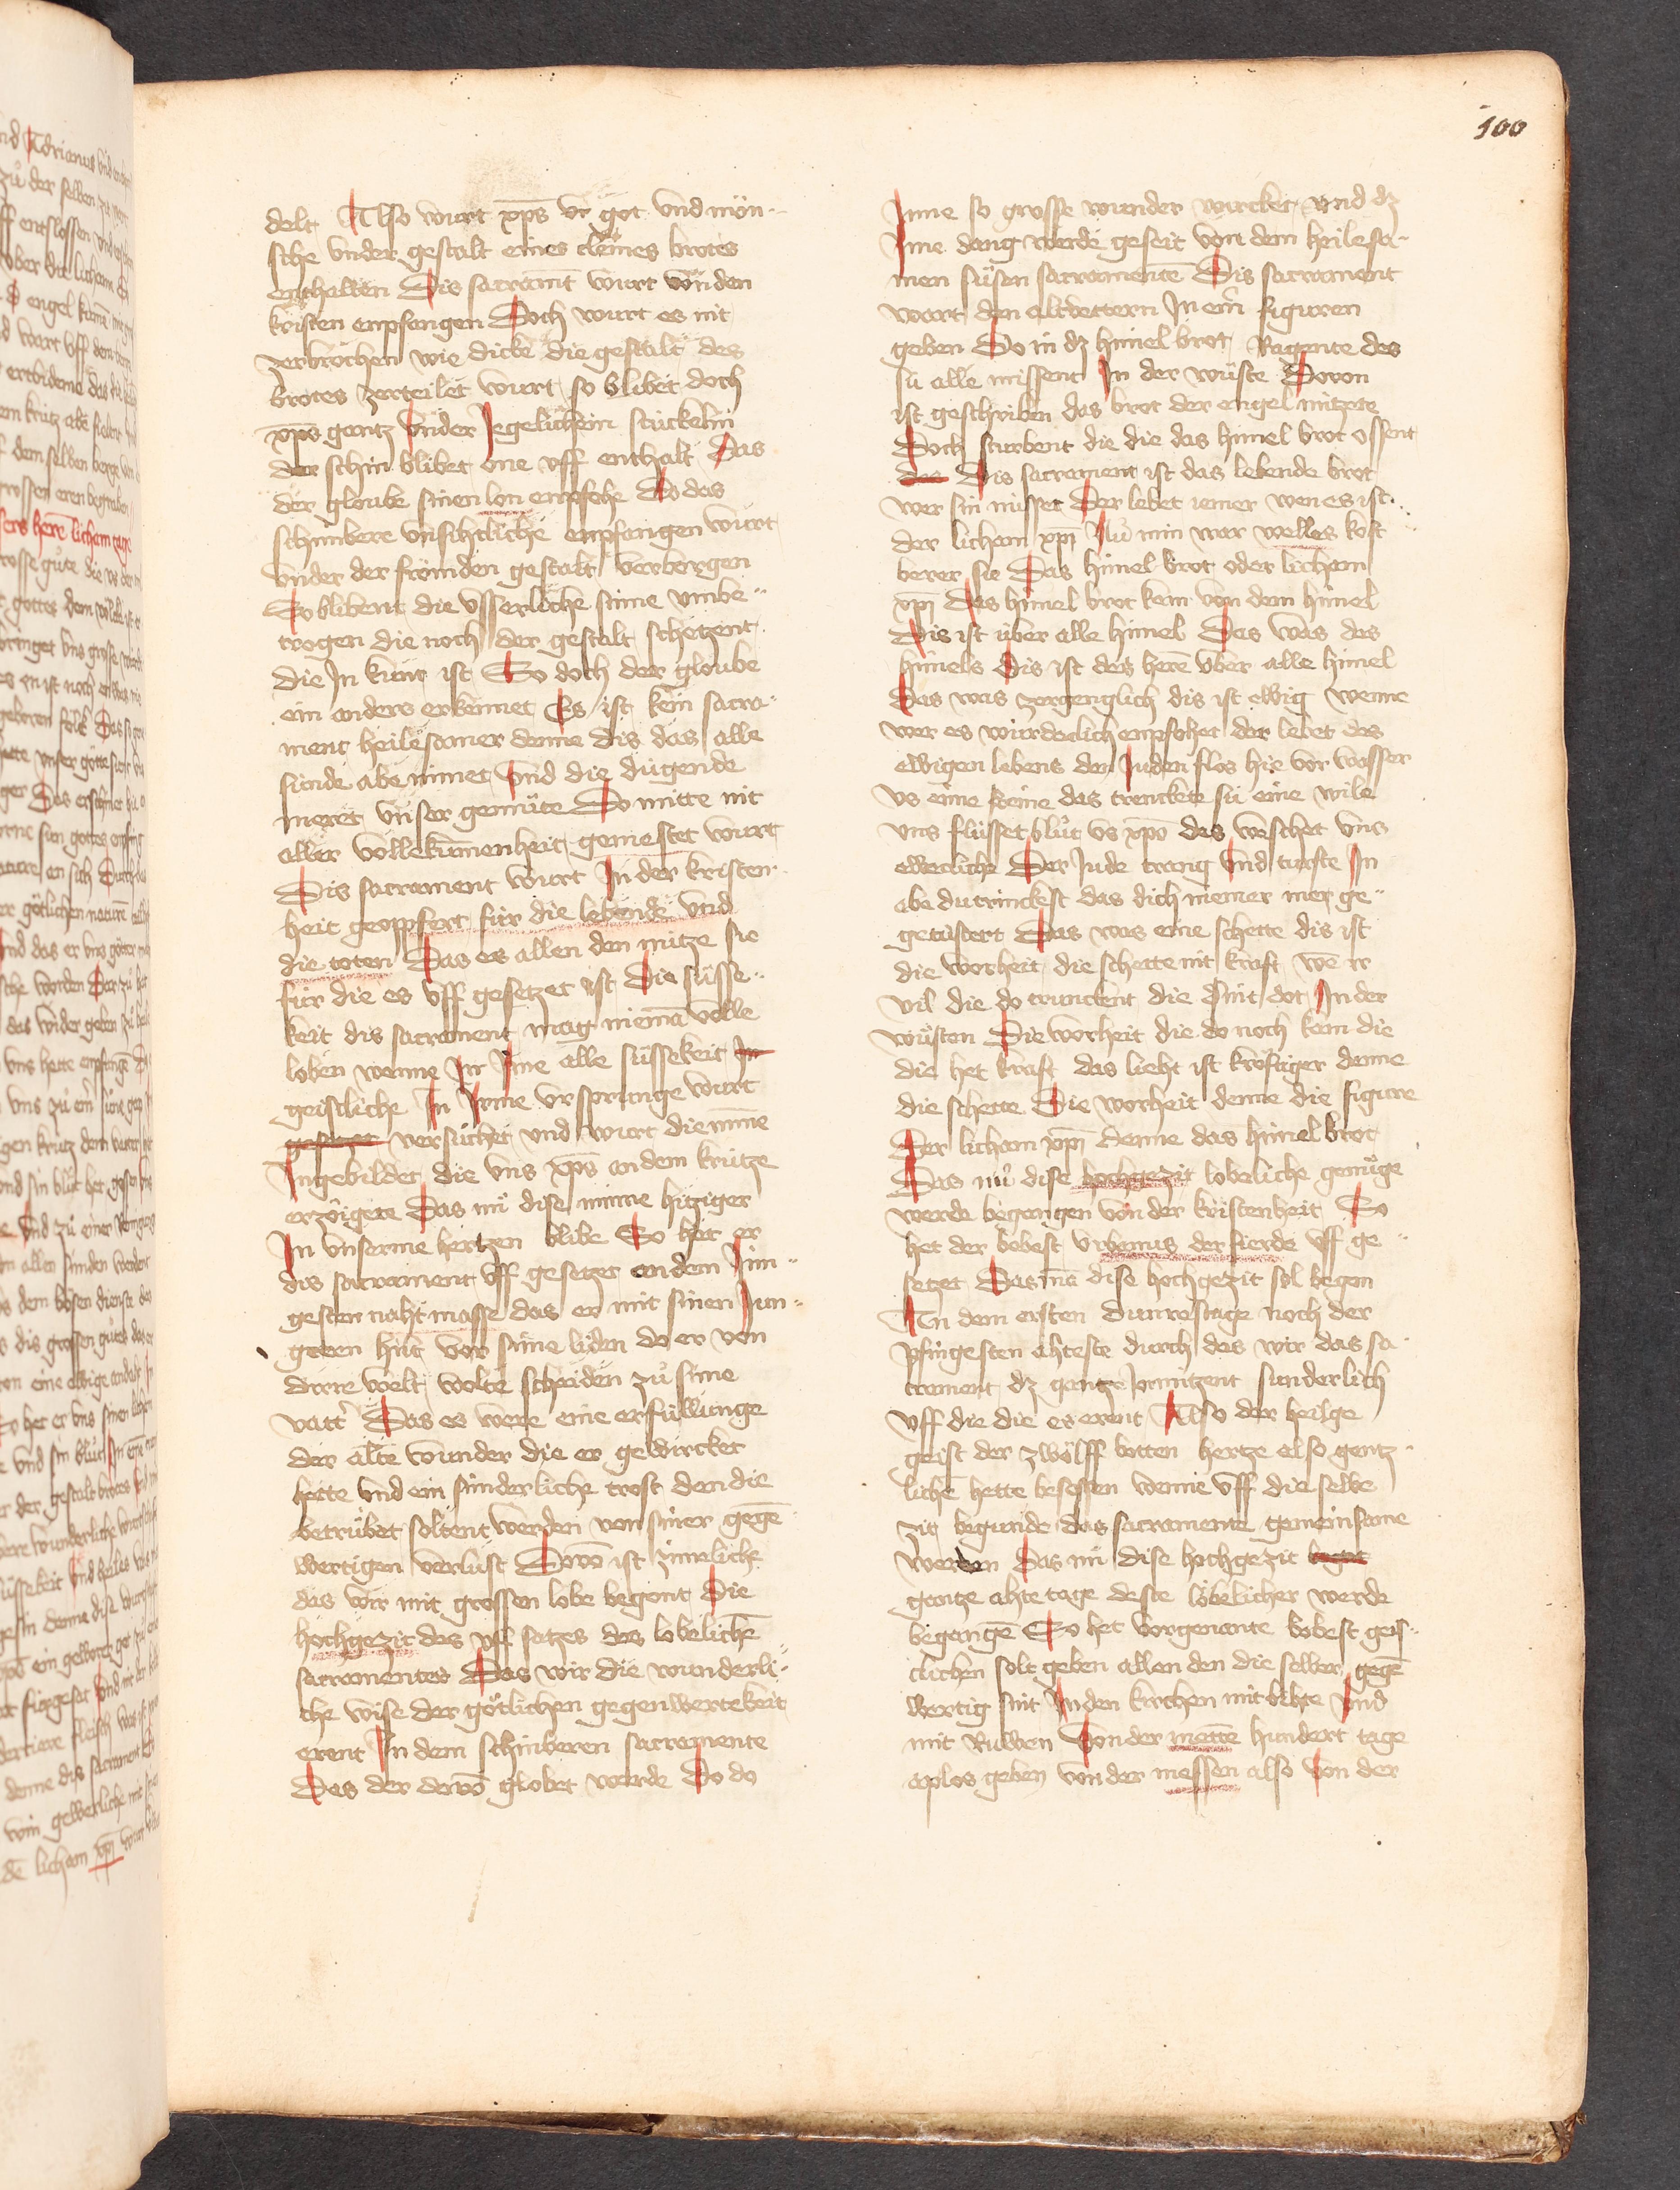 100
delt Also wurt xp̄s vr got vnd mön-
sche vnder gestalt eines cleines brotes
enthalten Dis sacramēt wurt von den
kristen empfangen Doch wurt es nit
zerbrochen wie dicke die gestalt des
brotes zerteilet wurt so blibet doch
xp̄s gentz vnder Jegelichem stückelin
der schin blibet one vff enthalt Das
der gloube sinen lon empfohe Do das
schinbere vnsihtliche empfangen wurt
vnder der frömden gestalt verborgen
So blibent die vsserliche sinne vmbe-
trogen die noch der gestalt schetzent
die In kunt ist So doch der gloube
ein anders erkennet Es ist kein sacra-
ment heilesamer denne dis das alle
sünde abe nimet vnd die dugende
meret vnser gemüte Do mitte nit
aller vollekumenheit gemestet wurt
Dis sacrament wurt In der kristen-
heit geoppfert für die lebende vnd
die toten Das es allen den nütze sie
für die es vff gesetzet ist Die süsse-
keit dis sacrament mag niemā volle
loben wenne In Ime alle süssekeit
geistliche In Irme vrsprunge wurt
versüchet vnd wurt die mīne
Ingebildet die vns xp̄s an dem krütze
erzöigete Das nü dise minne hitziger
In vnserme hertzen blibe So het er
dis sacrament vff gesetzet an dem Jun-
gesten nahtmasse das er mit sinen Jun-
gern hüt vor sime liden do er von
dirre welt wolte scheiden zů sime
vatt' Das es were eine erfüllunge
der alte wunder die er gewircket
hette vnd ein sunderliche trost den die
betrübet soltent werden von siner gegē
wertigen verlust Dovō ist zimeliche
das wir mit grossen lobe begont Die
hochgezit des vff satzes des lobelichē
sacramentes Das wir die wunderli-
che wise der götlichen gegenwertekeit
erent In dem schinberen sacramente
Das der dovō globet werde Do do
Inne so grosse wunder wircket vnd dz
Ime dang werde geseit von dem heilesa-
men süsen sacramentē Dis sacrament
wart den altvettern In eīn figuren
geben Do in dz himel brot Ragente des
sü alle nissent In der wüste Dovon
ist geschriben das brot der engel nützete
Doch sturbent die die das himel brot ossent
Dis sacrament ist das lebende brot
wer sin nisset Der lebet iemer wen es ist
der licham xp̄i Nů nim war welles kost
berer sie Das himel brot oder licham
xp̄i Das himel brot kem von dem himel
Dis ist über alle himel Das was des
himels Dis ist des herē vber alle himel
Das was zergenglich dis ist ewig wenne
wer es würdeclich empfohet der lebet des
ewigen lebens den Juden flos hie vor wasser
vs eime steine das trenckete sü eine wile
vns flüsset blůt vs xp̄o das weschet vns
eweclich Der Jude trang vnd turste In
obe du trinckest das dich niemer mer ge-
getürstert Das was eine schette dis ist
die worheit die schette nit kraft wē ir
vil die do trunckent die sint dot In der
wüsten Die worheit die do noch kem die
die het kraft das lieht ist kröftiger denne
die schette Die worheit denne die figure
Der licham xp̄i denne das himel brot
Das nů dise hochgezit lobeliche genůge
werde begangen von der kristenheit So
het der bebest Vrbanus der fierde vff ge-
setzet Das mā dise hochgezit sol began
An dem ersten dunrestage noch der
pfingesten ahteste durch das wir das sa-
crament dz gantze Jor nützent sunderlich
vff die die es erent Also der heilge
geist der zwölff botten hertze also gentz-
lichē hette besessen wenne vff die selbe
zit begunde das sacramente gemeinsame
werden Das nü dise hochgezit
gantze ahte tage deste löbelicher werde
begangē So het vorgenante bobest geis-
tlichen solt geben allen den die selber gegē
wertig sint In den kirchen mit bihte vnd
mit Ruwen Von der mettē hundert tage
aplos geben von der messen also von der